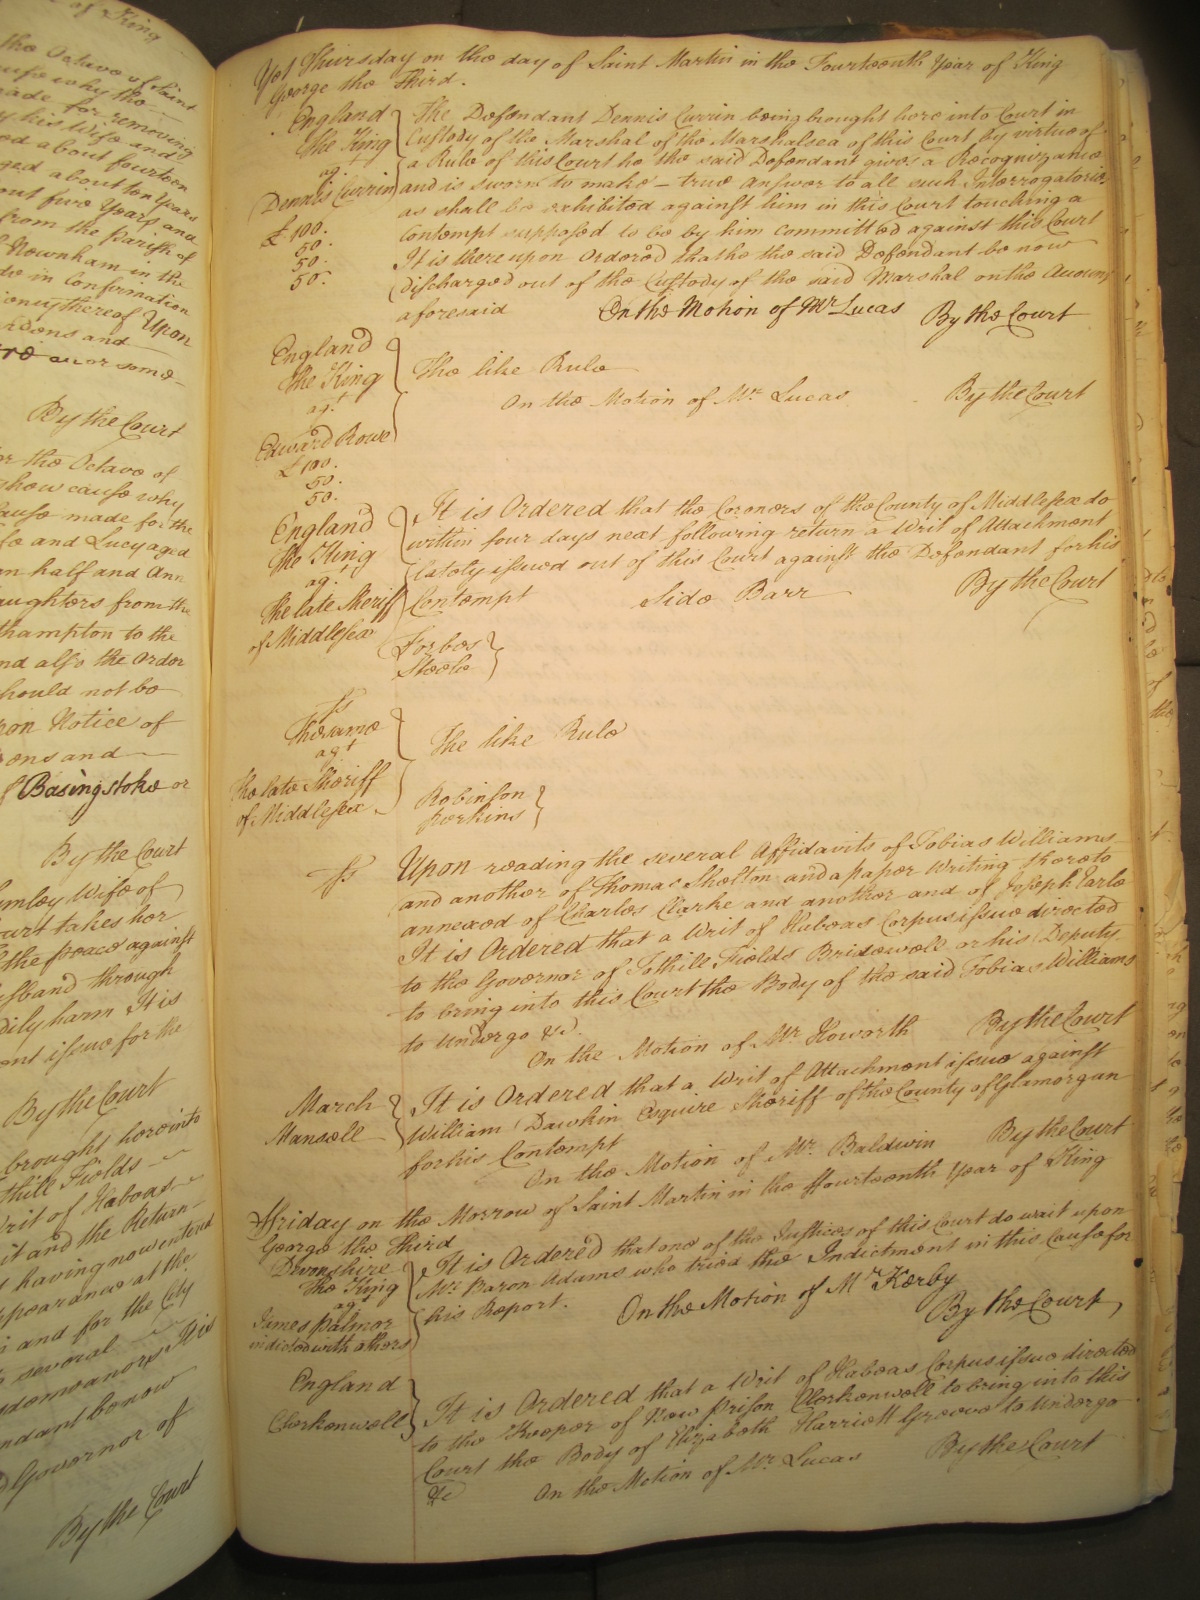 of King
the Octave of Saint
cause why the
made for removing
his Wife and
ed about fourteen
aged about ten Years
out five Years and
from the Parish of
Newnham in the
do in Confirmation
iency thereof Upon
rdens and
or some
By the Court
or the Octave of
show cause why
ause made for the
fe and Lucy aged
an half and Ann
aughters from the
thampton to the
nd also the Order
hould not be
pon Notice of
ens and
of Basingstoke or
By the Court
mley Wife of
ourt takes her
the peace against
usband through
dily harm It is
ent issue for the
By the Court
brought here into
thill Fields
Writ of Habeas
it and the Return
having now entered
ppearance at the
and for the City
several
demeanors It is
endant be now
Governor of
By the Court
Yet Thursday on the day of Saint Martin in the Fourteenth Year of King
George the Third.
England
The King
agt
Dennis Currin
£100.
50.
50.
50.
The Defendant Dennis Currin being brought here into Court in
Custody of the Marshal of the Marshalsea of this Court by virtue of
a Rule of this Court he the said Defendant gives a Recognizance
and is sworn to make true Answer to all such Interrogatories
as shall be exhibited against him in this Court touching a
Contempt supposed to be by him committed against this Court
It is thereupon Ordered that he the said Defendant be now
discharged out of the Custody of the said Marshal on the Account
aforesaid On the Motion of Mr Lucas By the Court
England
The King
agt
Edward Rowe
£100.
50.
50.
The like Rule
On the Motion of Mr Lucas By the Court
England
The King
agt
The late Sheriff
of Middlesex
It is Ordered that the Coroners of the County of Middlesex do
within four days next following return a Writ of Attachment
lately issued out of this Court against the Defendant for his
Contempt Side Barr By the Court
Forbes
Steele
ss
The same
agt
the late Sheriff
of Middlesex
The like Rule
Robinson
Perkins
ss
Upon reading the several Affidavits of Tobias Williams
and another of Thomas Shelton and a paper Writing thereto
annexed of Charles Clarke and another and of Joseph Earle
It is Ordered that a Writ of Habeas Corpus issue directed
to the Governor of Tothill Fields Bridewell or his Deputy
to bring into this Court the Body of the said Tobias Williams
to undergo &c.
On the Motion of Mr Howorth By the Court
March
Mansell
It is Ordered that a Writ of Attachment issue against
William Dawkin Esquire Sheriff of the County of Glamorgan
for his Contempt
On the Motion of Mr. Baldwin By the Court
Friday on the Morrow of Saint Martin in the ffourteenth Year of King
George the Third
Devonshire
The King
agt
James Palmer
indicted with others
It is Ordered that one of the Justices of this Court do wait upon
Mr. Baron Adams who tried the Indictment in this Cause for
his Report.
On the Motion of Mr Kerby
By the Court
England
Clerkenwell
It is Ordered that a Writ of Habeas Corpus issue directed
to the Keeper of New Prison Clerkenwell to bring into this
Court the Body of Elizabeth Harriett Greeve to undergo
&c On the Motion of Mr. Lucas By the Court